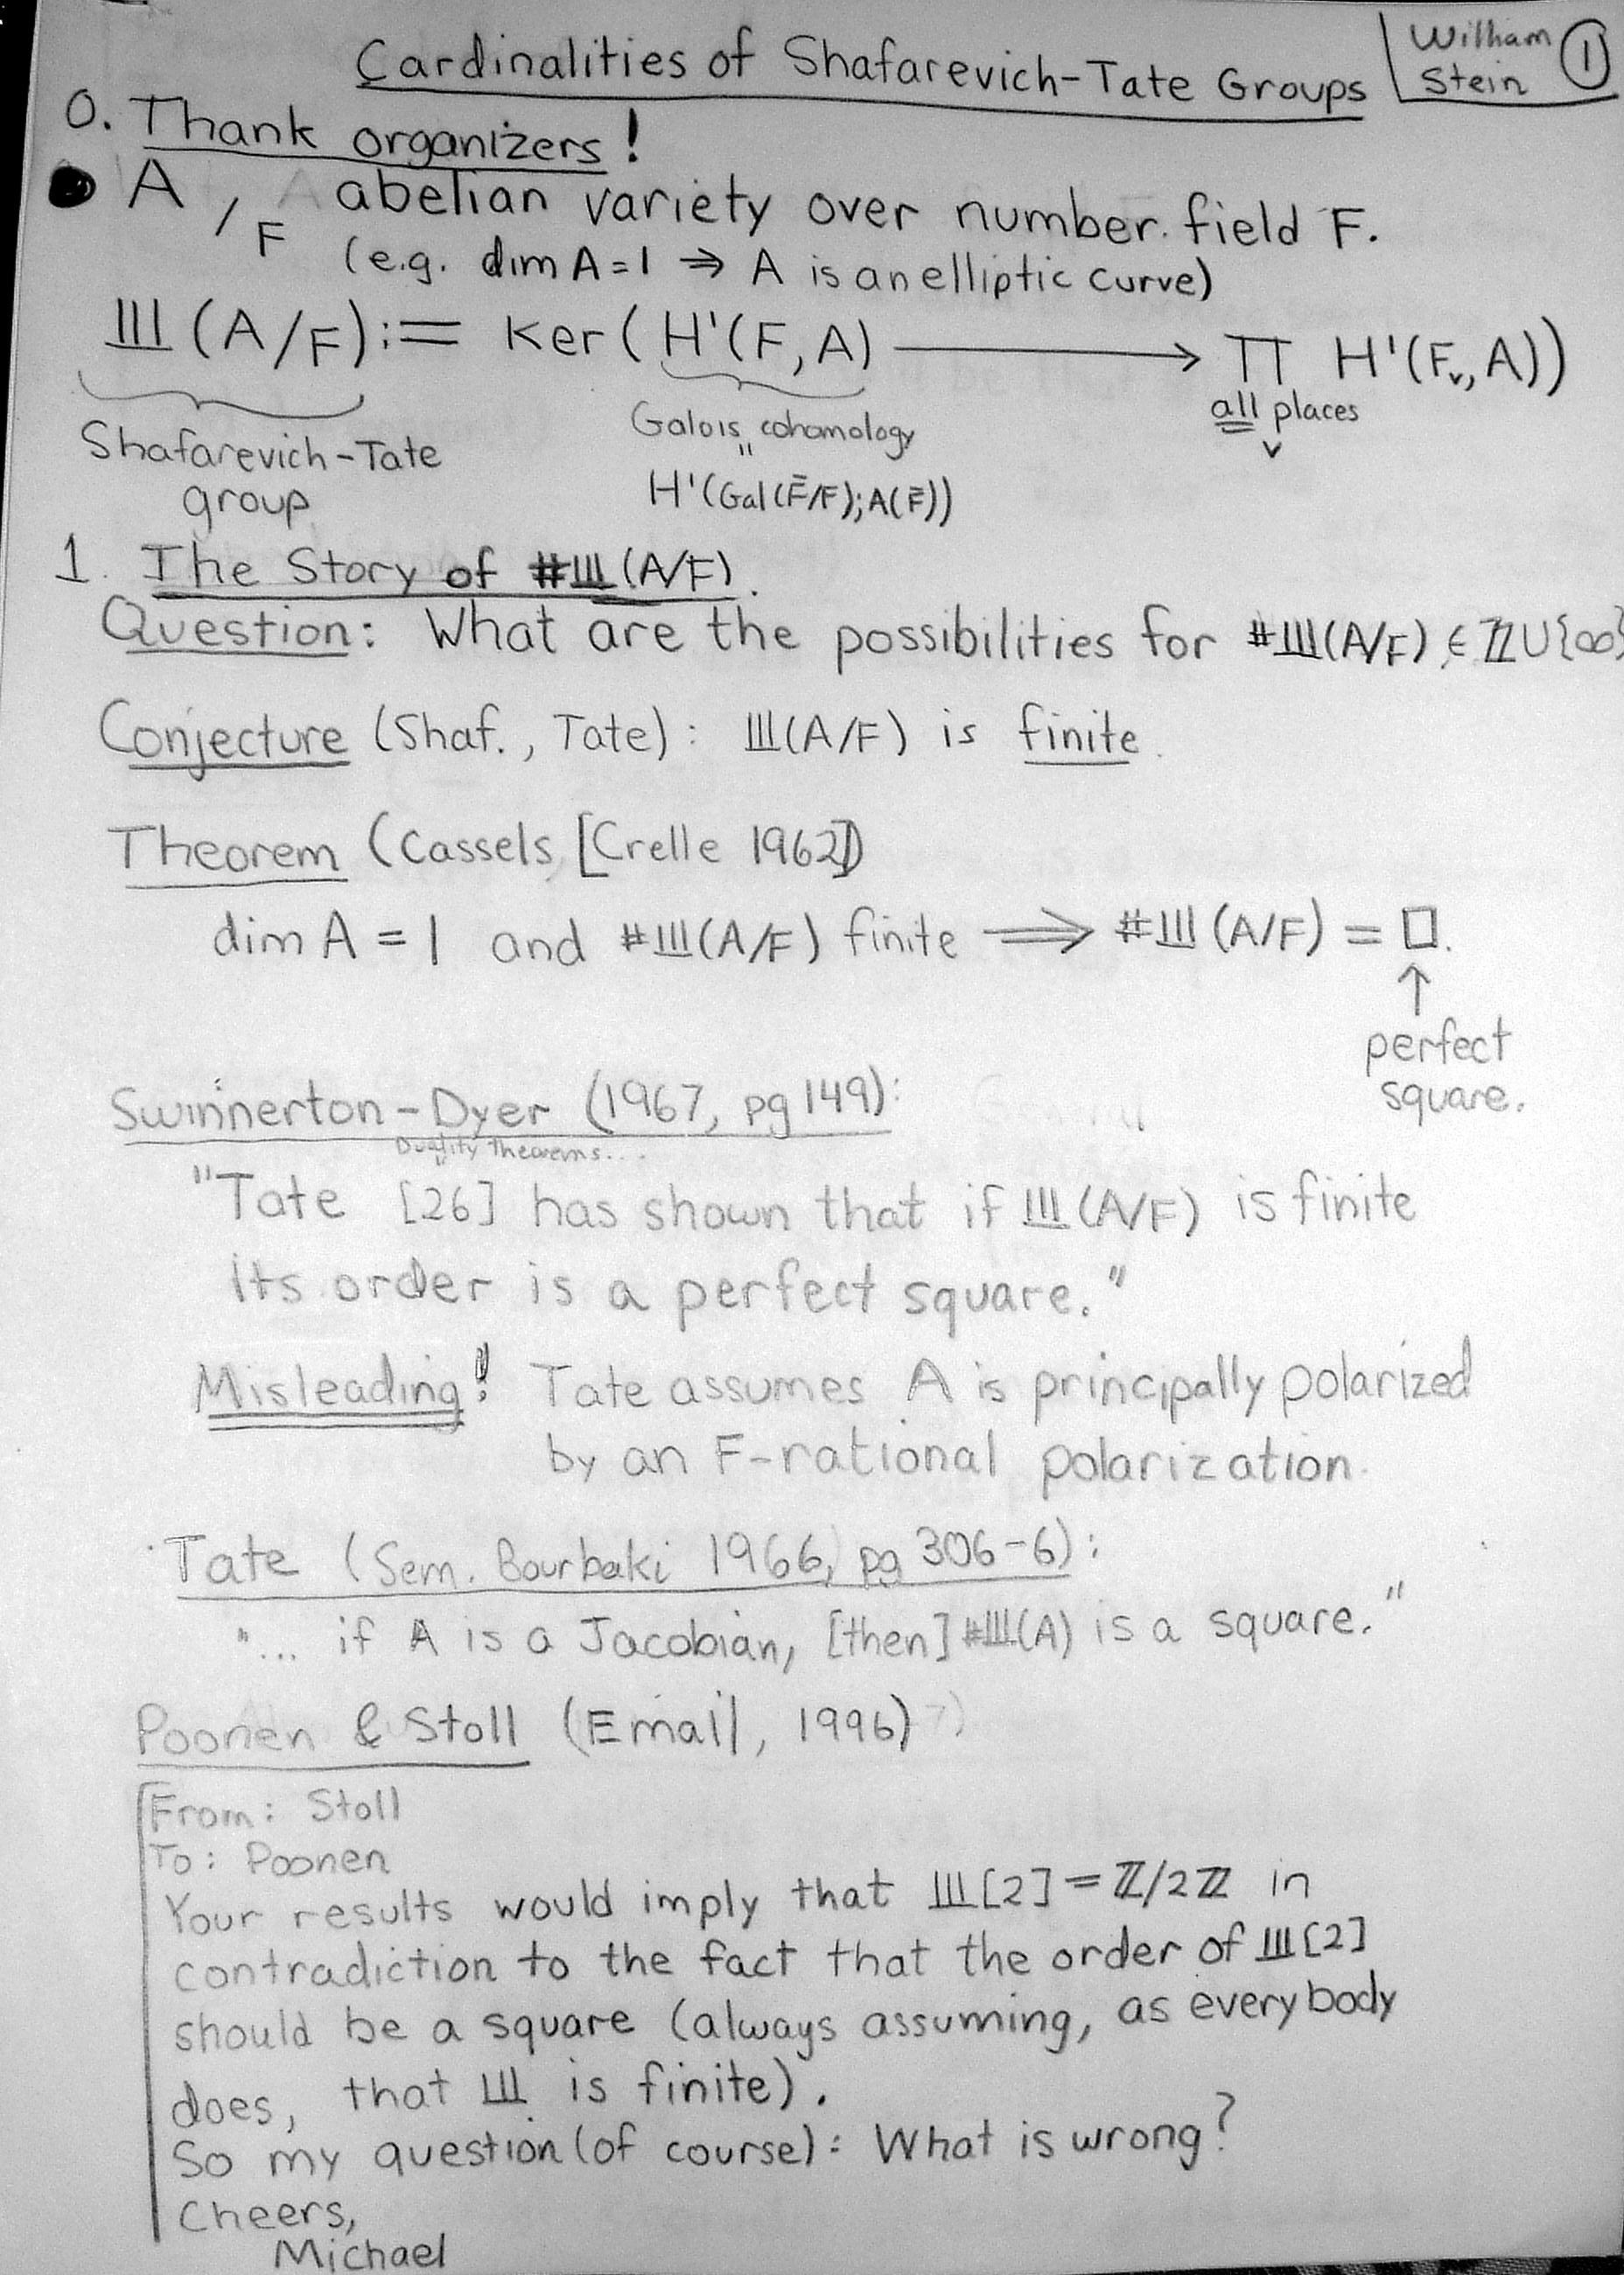 Cardinalities of Shafarevich-Tate Groups
William Stein ①
0. Thank organizers!
A /F abelian variety over number field F.
(e.g. dim A=1 ⇒ A is an elliptic curve)
Ш(A/F):= Ker(H¹(F,A) ⟶ ∏ H¹(F_v,A))
all places
v
Shafarevich-Tate
group
Galois cohomology
"
H¹(Gal(F̄/F);A(F̄))
1. The Story of #Ш(A/F).
Question: What are the possibilities for #Ш(A/F) ∈ ℤ∪{∞}
Conjecture (Shaf., Tate): Ш(A/F) is finite.
Theorem (Cassels [Crelle 1962])
dim A = 1 and #Ш(A/F) finite ⟹ #Ш(A/F) = □.
↑
perfect
square.
Swinnerton-Dyer (1967, pg 149):
Duality Theorems...
"Tate [26] has shown that if Ш(A/F) is finite
its order is a perfect square."
Misleading! Tate assumes A is principally polarized
by an F-rational polarization.
Tate (Sem. Bourbaki 1966, pg 306-6):
"... if A is a Jacobian, [then] #Ш(A) is a square."
Poonen & Stoll (Email, 1996)
From: Stoll
To: Poonen
Your results would imply that Ш[2] = ℤ/2ℤ in
contradiction to the fact that the order of Ш[2]
should be a square (always assuming, as everybody
does, that Ш is finite).
So my question (of course): What is wrong?
Cheers,
Michael